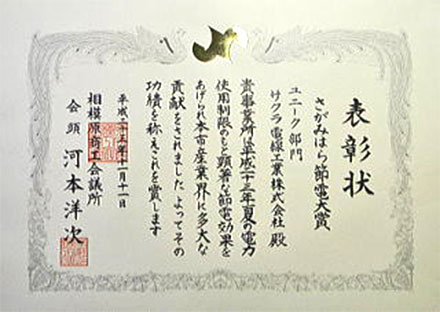 表彰状
さがみはら節電大賞
ユニーク部門
サクラ電線工業株式会社 殿
貴事業所は平成二十三年夏の電力
使用制限のもと顕著な節電効果を
あげられ本市産業界に多大な
貢献をされましたよってその
功績を称えこれを賞します
平成二十三年十一月十一日
相模原商工会議所
会頭 河本洋次